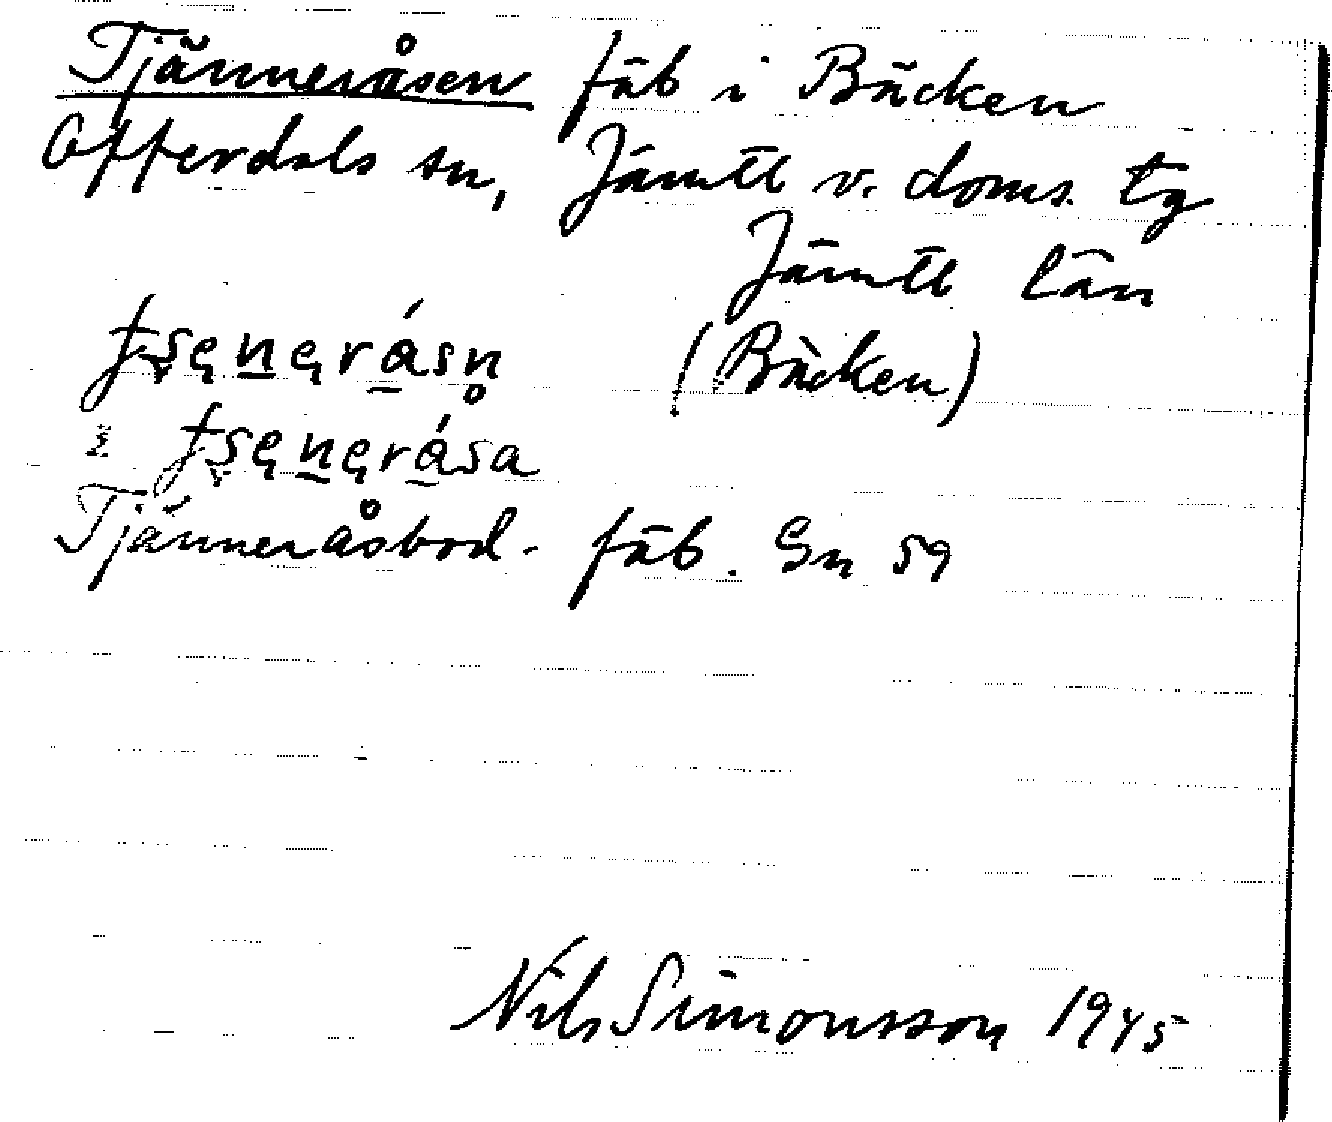 Tjänneråsen fäb i Bäcken
Offerdals sn, Jämtl v. doms. tg
Jämtl län
(Bäcken)
Tjänneråsbod. fäb. Gn 59
Nils Simonsson 1945